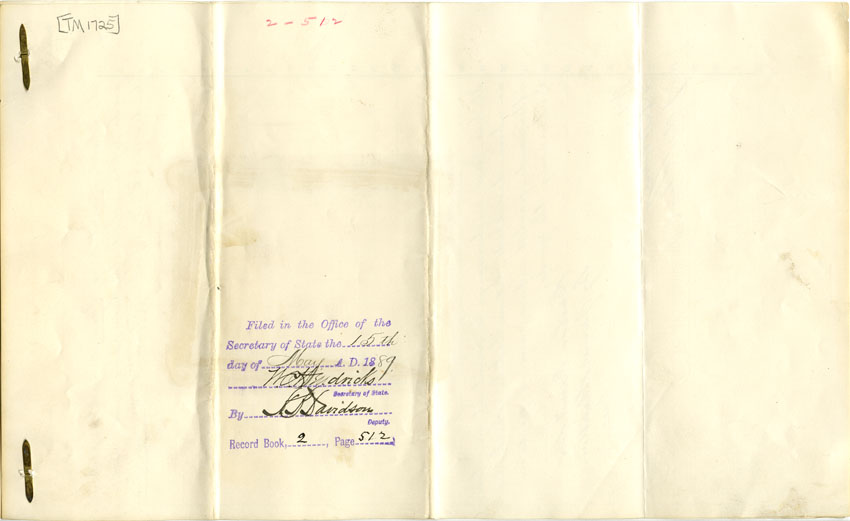 [TM1725]
2-512
Filed in the Office of the
Secretary of State the 15th
day of May A. D. 1889
W. Hydricks
Secretary of State.
By Davidson
Deputy.
Record Book, 2, Page 512